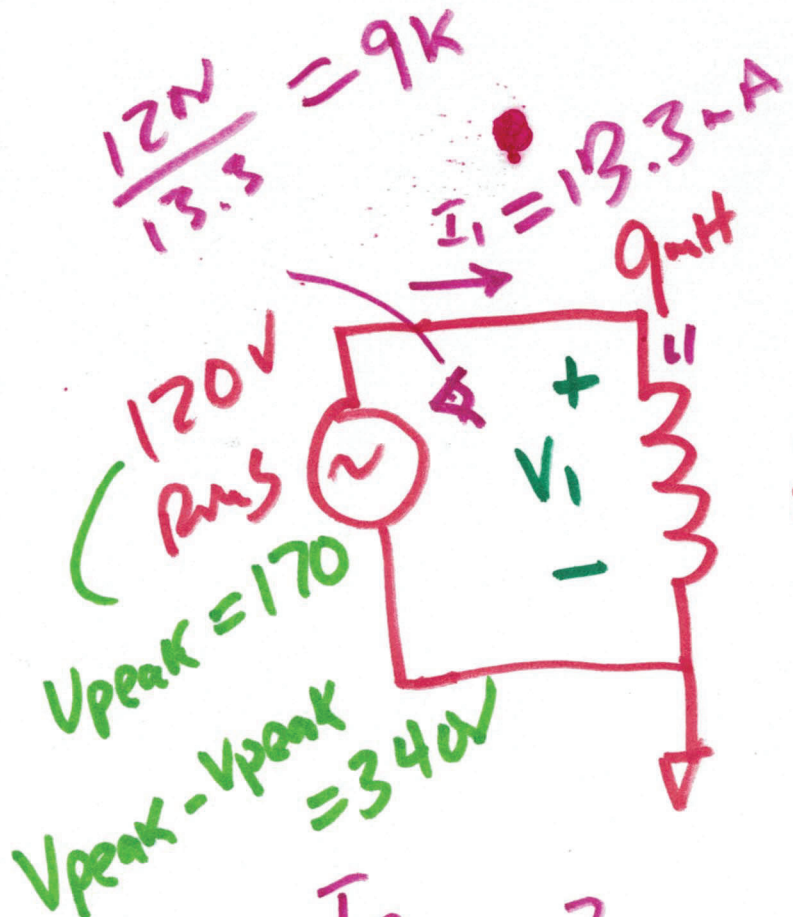 12N
13.3
= 9K
I₁ = 13.3mA
9mH
120V
Rms
~
+
V₁
−
Vpeak = 170
Vpeak - Vpeak
= 340V
I